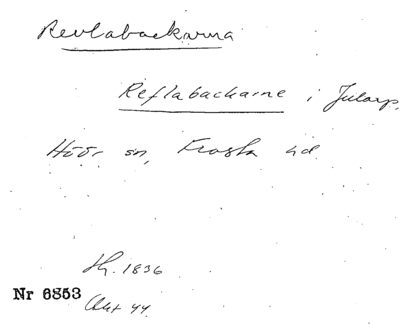 Revlabackarna
Reflabackarne i Jularp,
Höör sn, Frosta hd
Sh. 1836
Nr 6853
Akt 44.